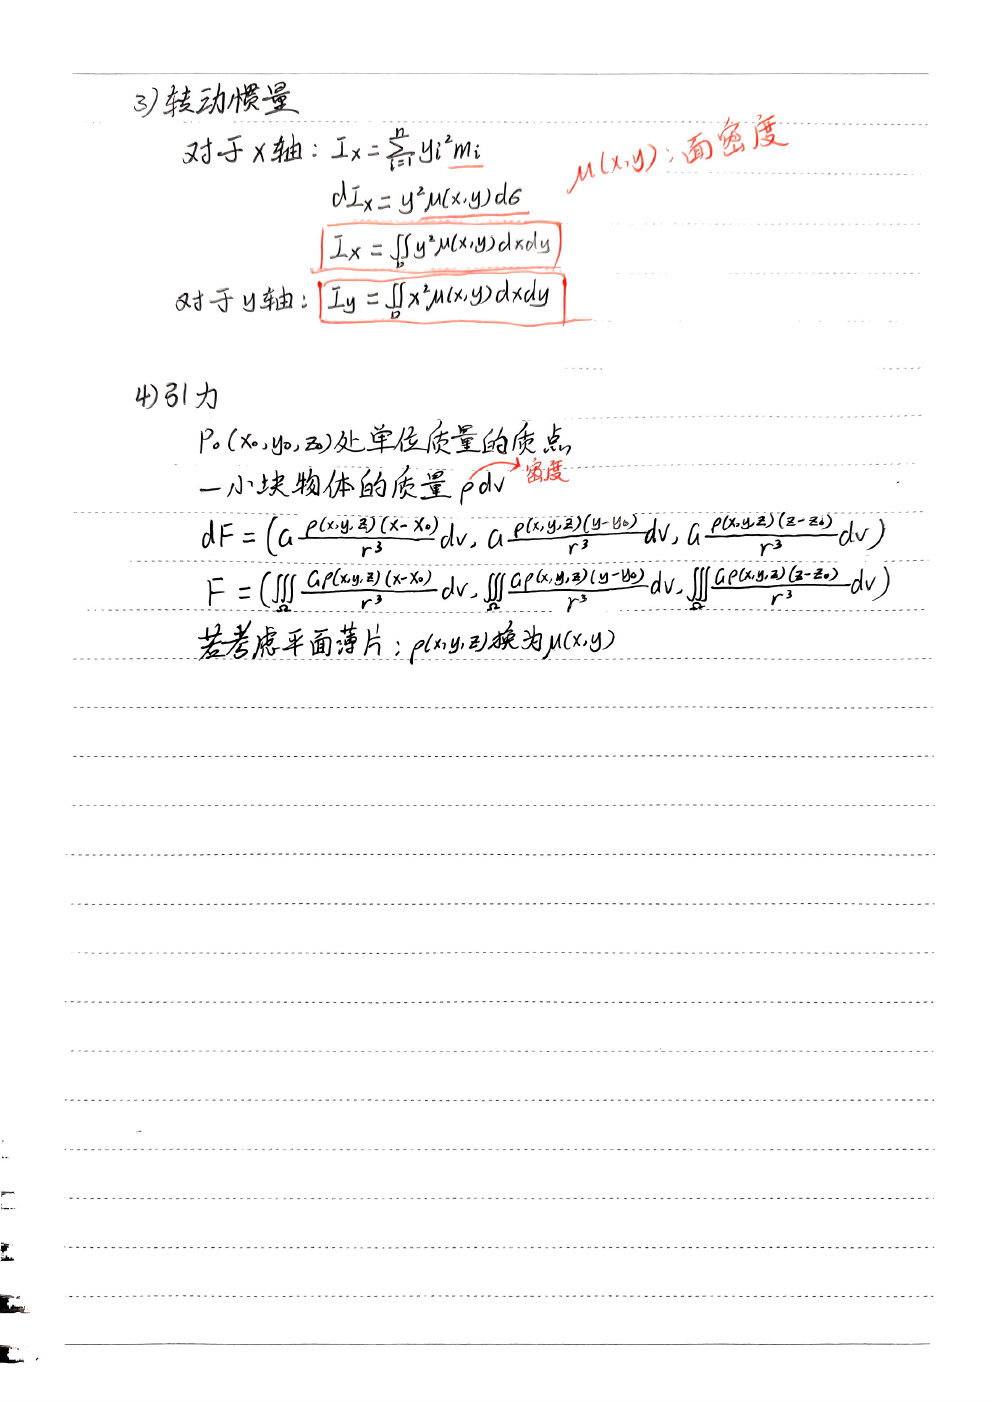 3)转动惯量
对于x轴: Ix = ∑_{i=1}^{n} yi²mi
μ(x,y):面密度
dIx = y²μ(x,y)dσ
Ix = ∬_D y²μ(x,y)dxdy
对于y轴: Iy = ∬_D x²μ(x,y)dxdy
4)引力
P₀(x₀,y₀,z₀)处单位质量的质点
一小块物体的质量ρdv 密度
dF = (G ρ(x,y,z)(x-x₀)/r³ dv, G ρ(x,y,z)(y-y₀)/r³ dv, G ρ(x,y,z)(z-z₀)/r³ dv)
F = (∭_Ω Gρ(x,y,z)(x-x₀)/r³ dv, ∭_Ω Gρ(x,y,z)(y-y₀)/r³ dv, ∭_Ω Gρ(x,y,z)(z-z₀)/r³ dv)
若考虑平面薄片: ρ(x,y,z)换为μ(x,y)